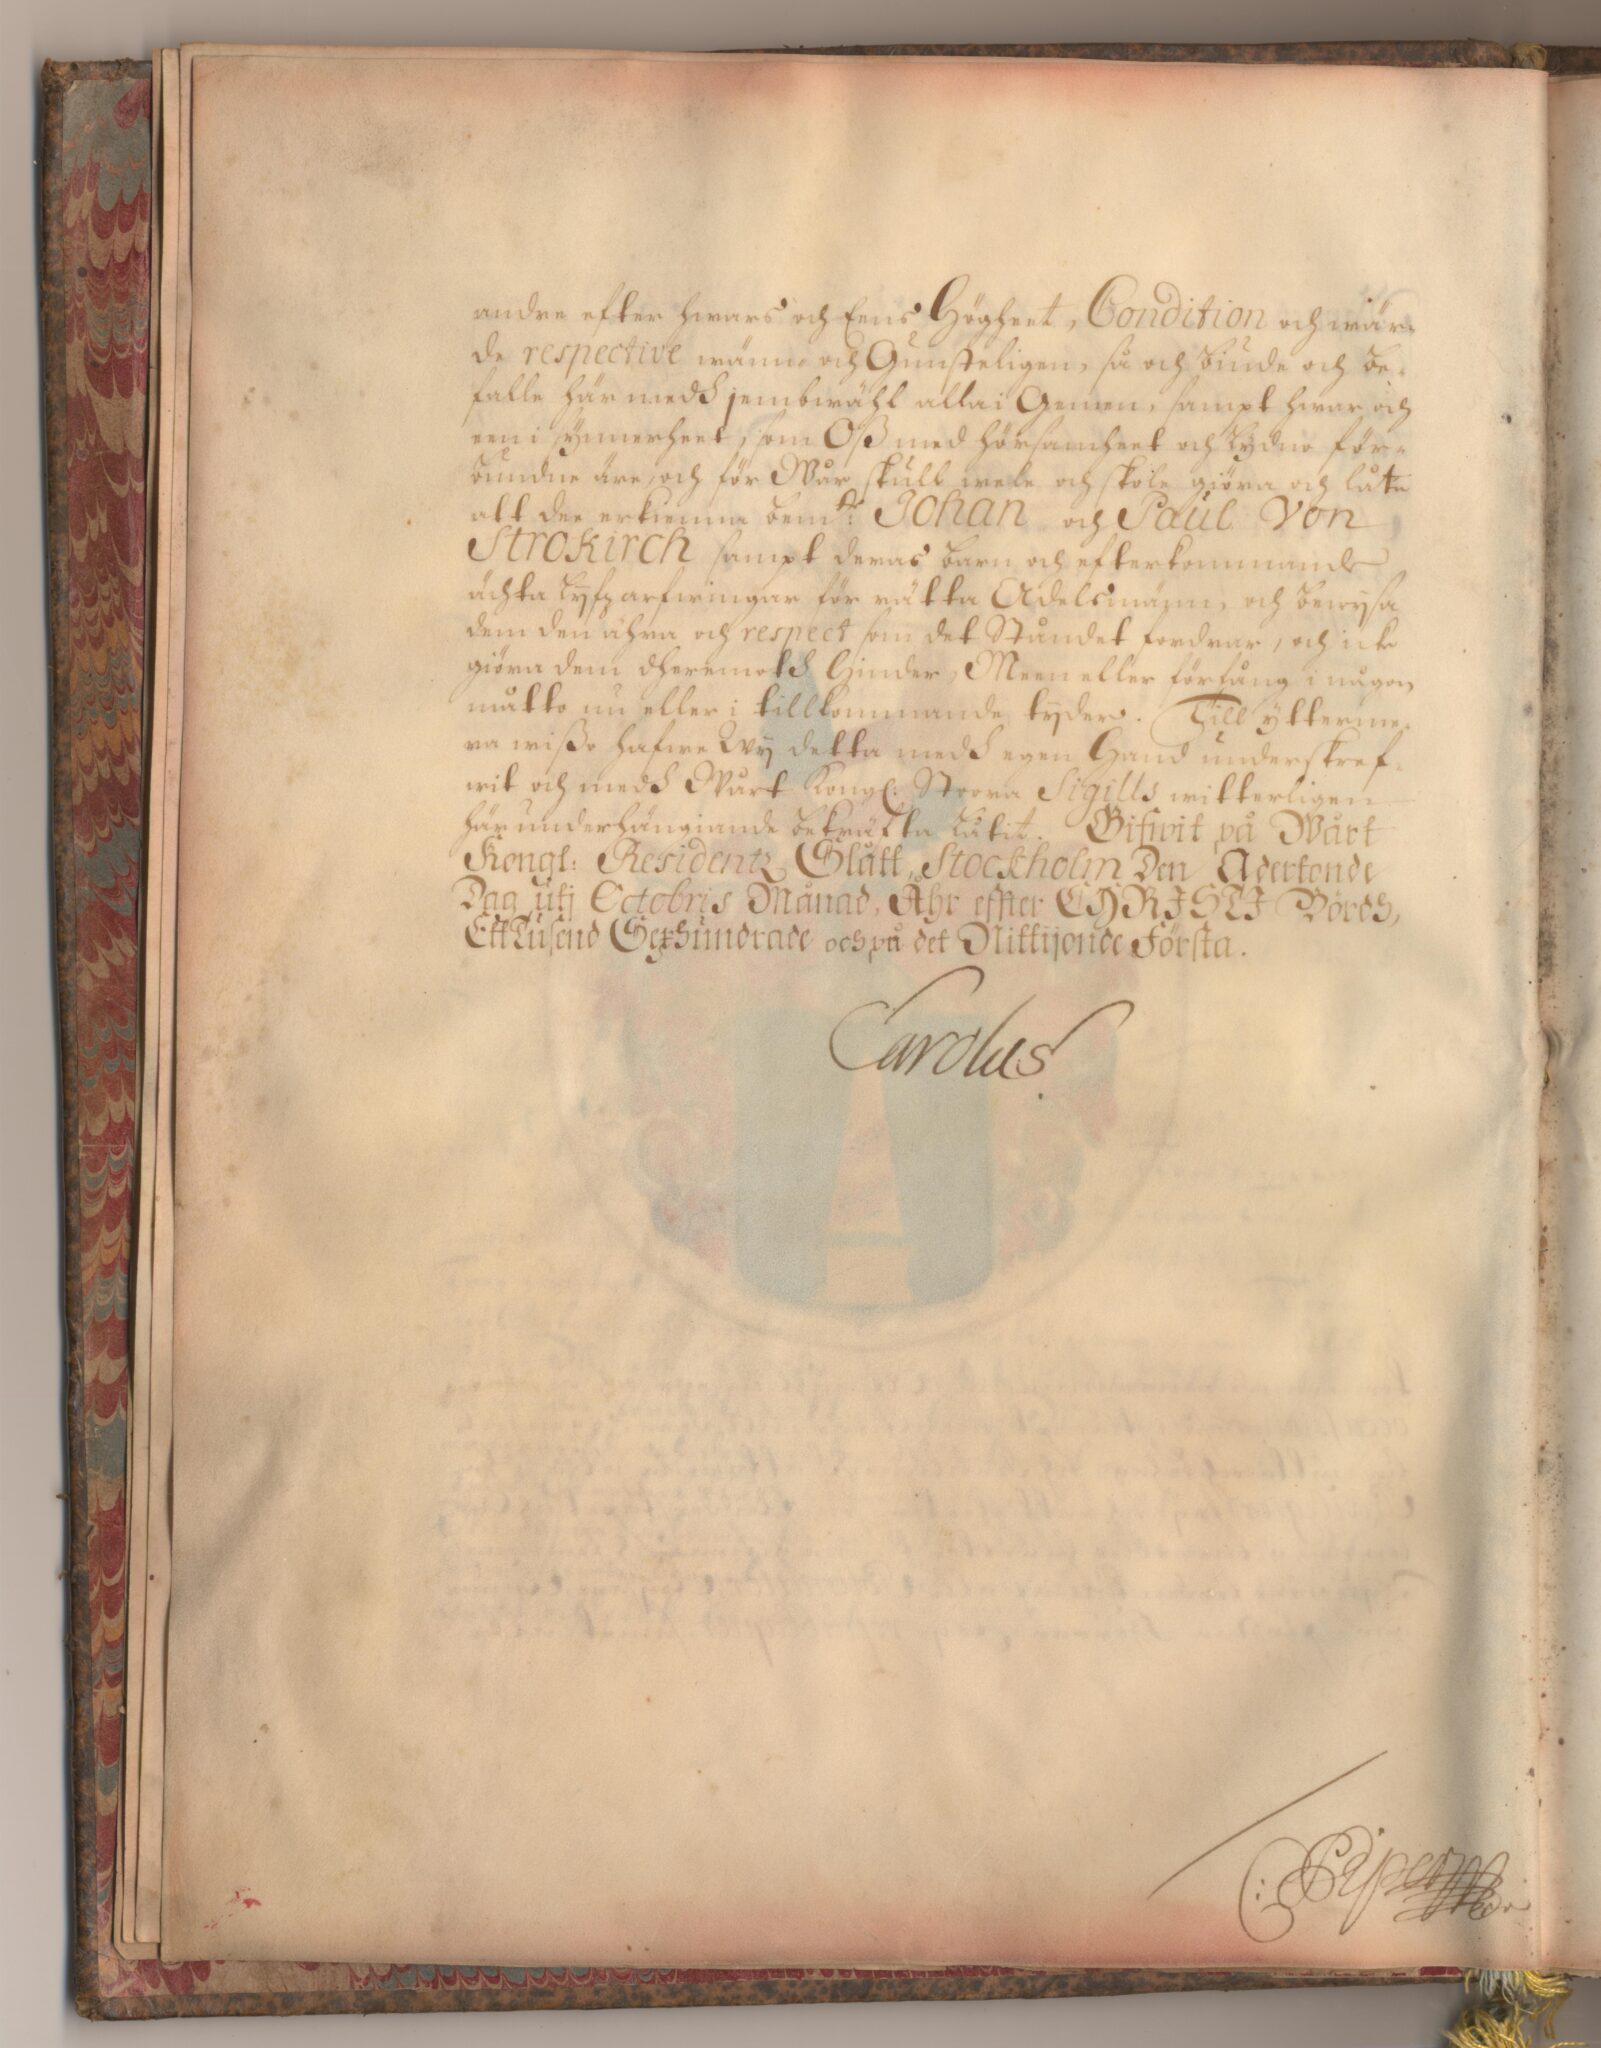 andre efter hwars och Eens Högheet, Condition och wär-
de respective wänn och Gunsteligen, så och biude och be-
falle här medh jembwähl alla i Gemen, sampt hwar och
een i synnerheet, som Oß med hörsamheet och lydno för-
bundne äre, och för Wår skull wele och skole giöra och låta
att dee erkienna bem:te Johan och Paul Von
Strokirch sampt deras barn och efterkommande
ächta lyfzarfwingar för rätta Adelsmänn, och bewysa
dem den ähra och respect som det Ståndet fordrar, och icke
giöra dem dheremoth Hinder, Meen eller förfång i någon
måtto nu eller i tillkommande tyder. Till ytterme-
ra wißo hafwe Wy detta medh egen Hand underskref-
wit och medh Wårt Kongl: Stoora Sigills witterligen
här underhängiande bekräfta låtit. Gifwit på Wårt
Kongl: Residentz Slått, Stockholm Den Adertonde
Dag utj Octobris Månad, Åhr effter CHRISTI Bördh,
Ett Tusend Sexhundrade och på det Nittijonde Första.
Carolus
C: Piper